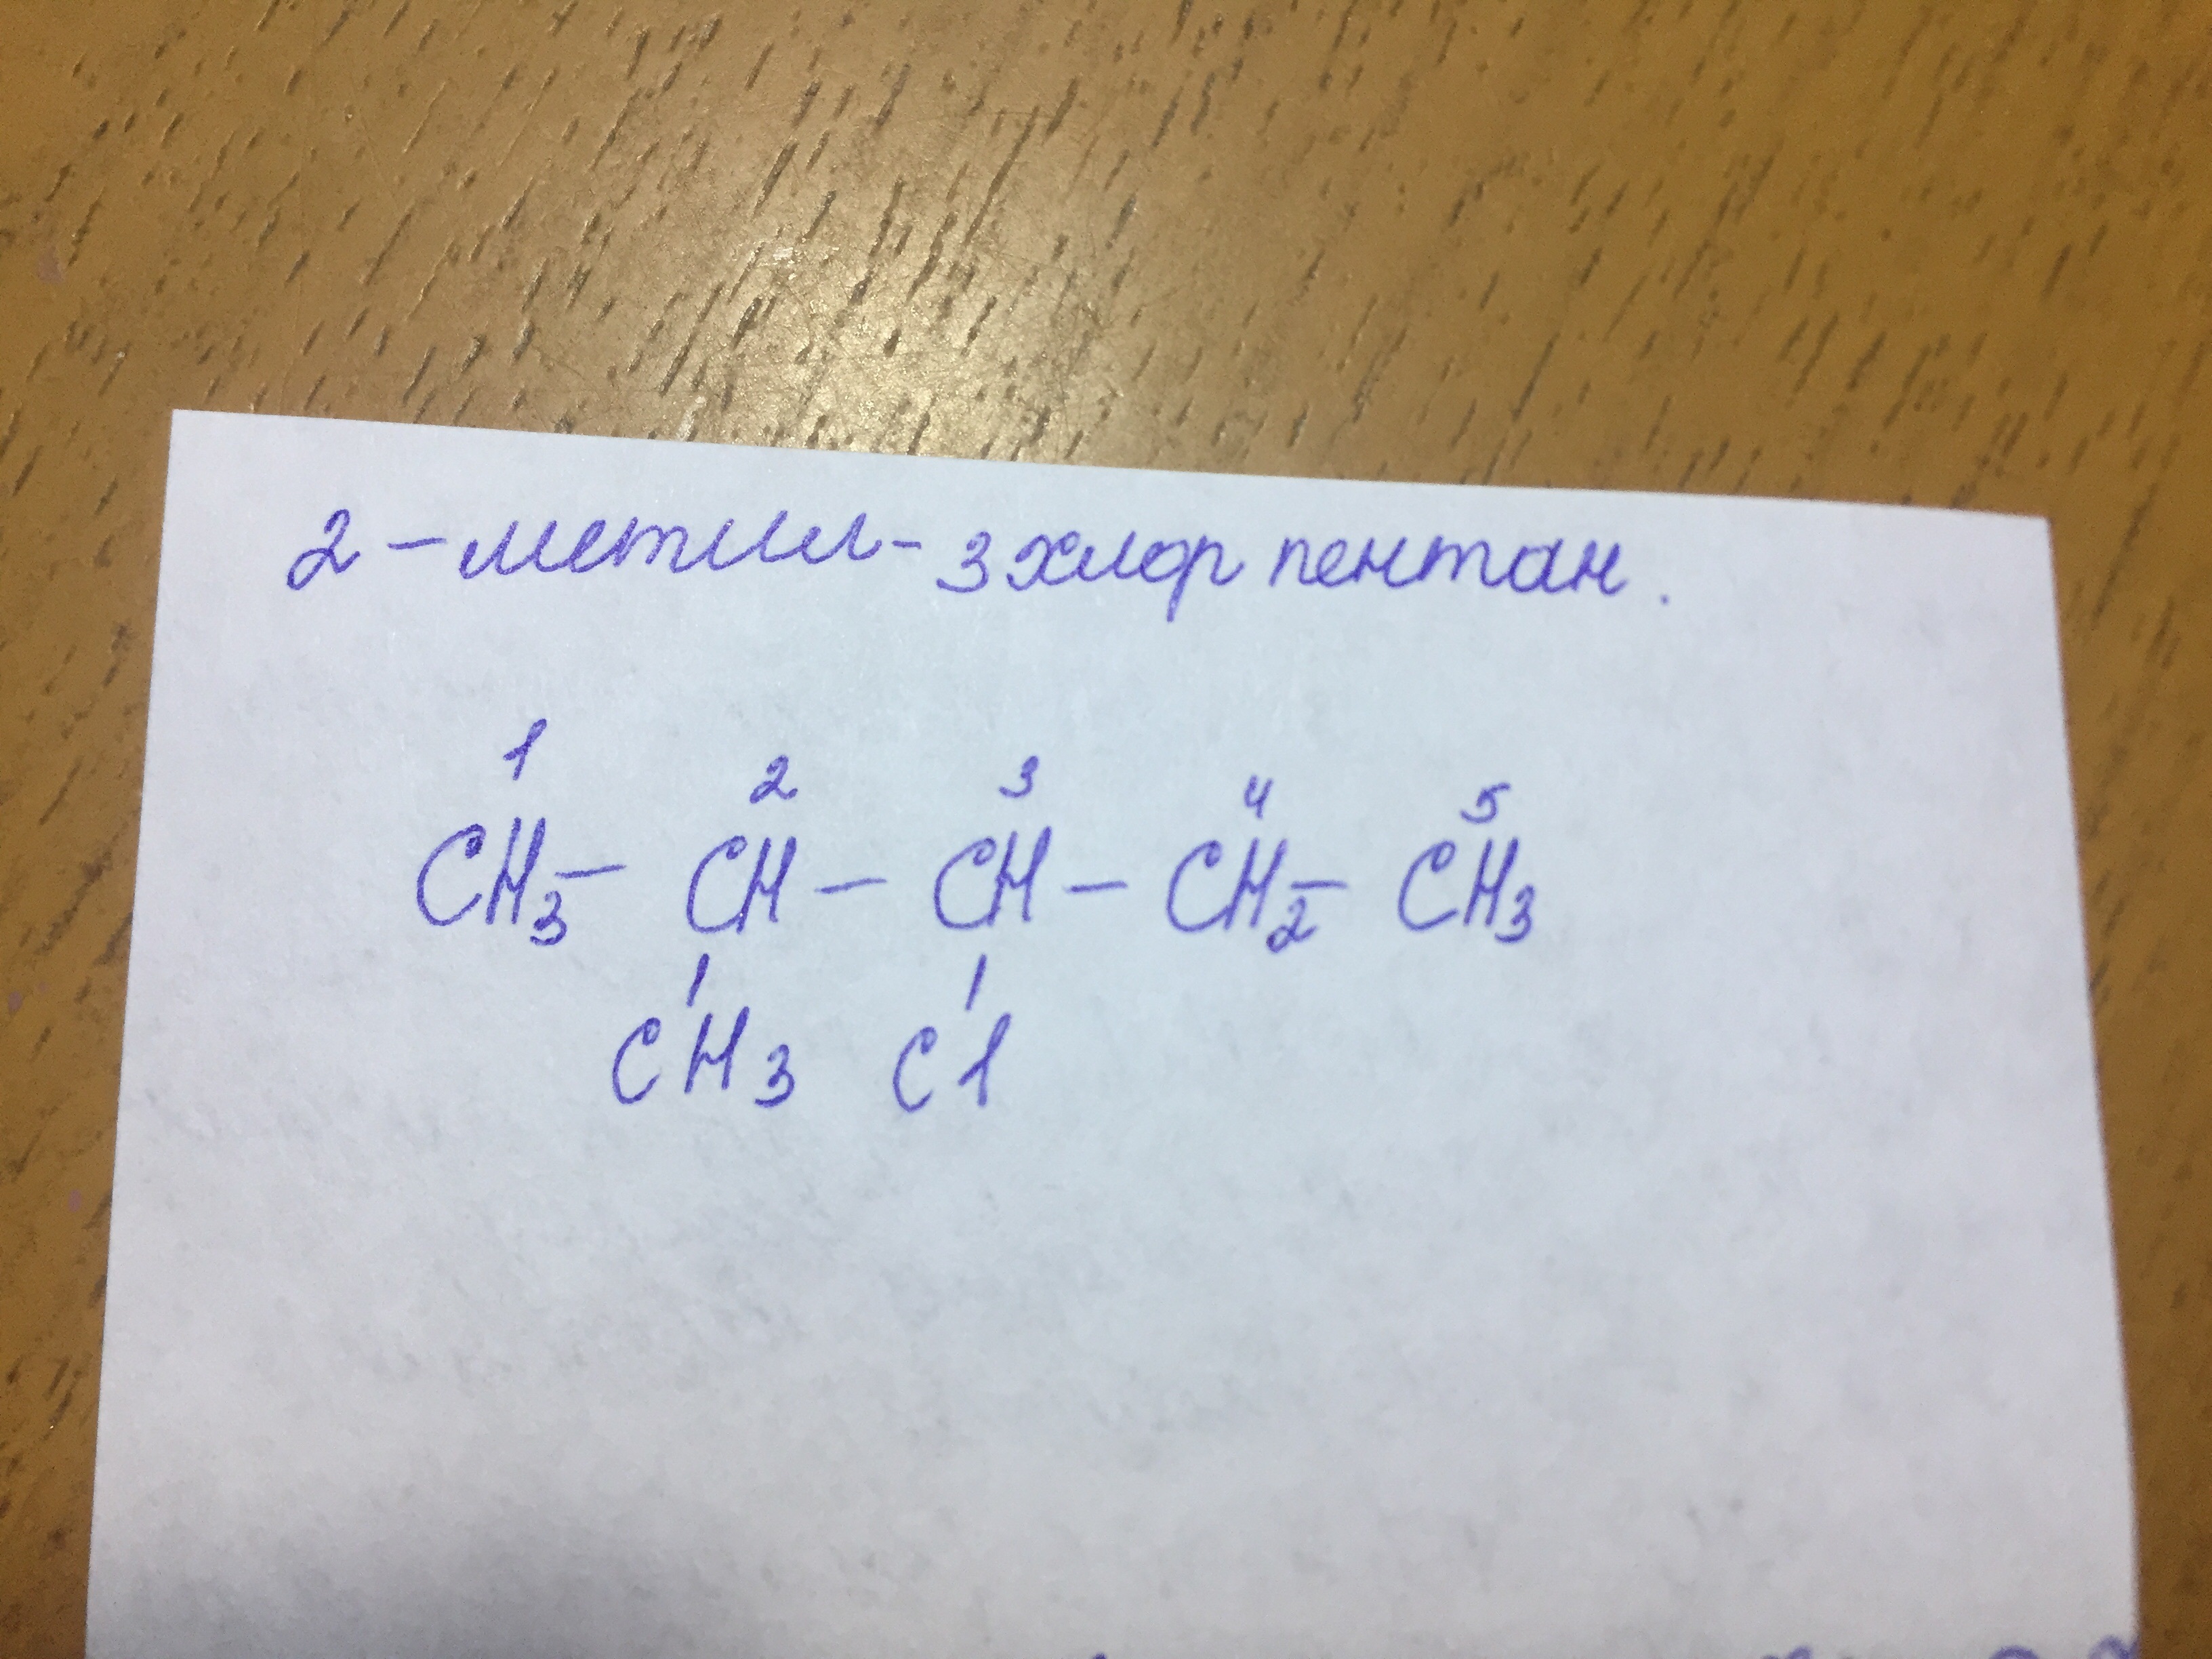 2-метил-3хлор пентан.
1 2 3 4 5
CH3 - CH - CH - CH2 - CH3
CH3 Cl